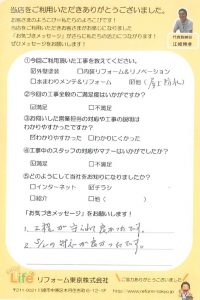 当店をご利用いただきありがとうございました。
お客さまのようこび=私たちのようこびです!
当店をご利用いただきお客さまがお感じになりました
「お気づきメッセージ」がさらに私たちの力につながります!
ぜひメッセージをお願いします!
代表取締役
①今回ご利用頂いた工事を教えてください。
☑外壁塗装 □内装リフォーム&リノベーション
□水まわりメンテ&リフォーム □他(
②工事全般のご満足度はいかがですか?
☑満足 □不満足
③お伺いした営業担当の対応や工事の説明は
わかりやすかったですか?
☑わかりやすかった □わかりにくかった
④工事中のスタッフの対応やマナーはいかがでしたか?
☑満足 □不満足
⑤どのようにして当社をお知りになりましたか?
□インターネット ☑チラシ
□紹介 □他( )
「お気づきメッセージ」をお願いします!
1. 工程が守られて良かったです。
2. の対応が良かったです。
Life リフォーム東京株式会社
ご協力ありがとうございました